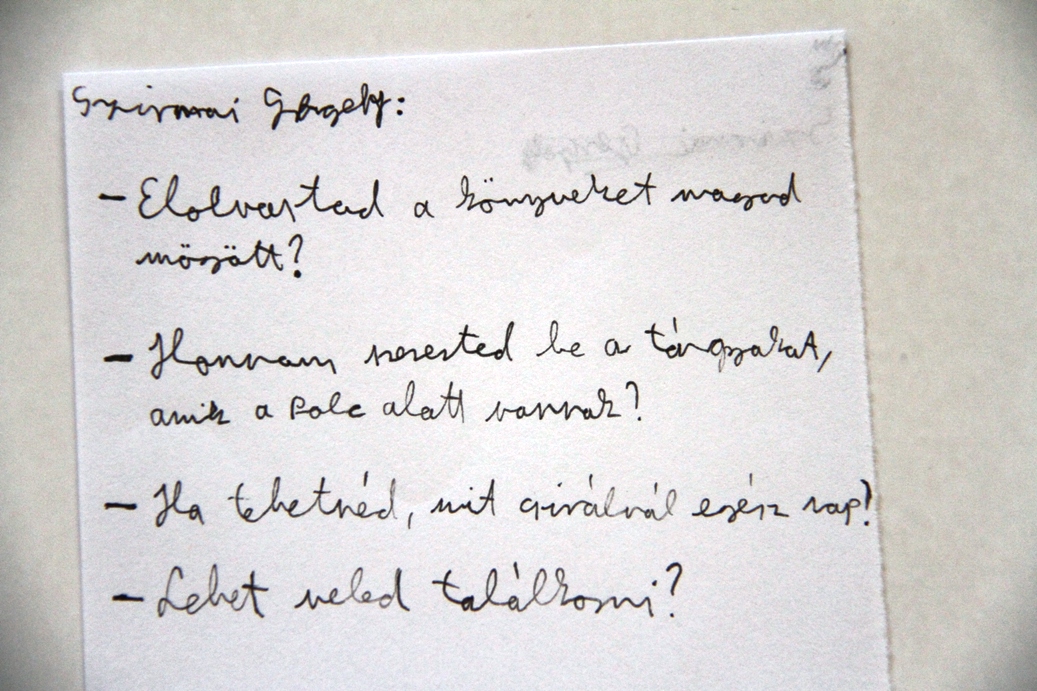 Szirmai Gergely:
- Elolvastad a könyveket magad
mögött?
- Honnan szerezted be a tárgyakat,
amik a polc alatt vannak?
- Ha tehetnéd, mit csinálnál egész nap?
- Lehet veled találkozni?